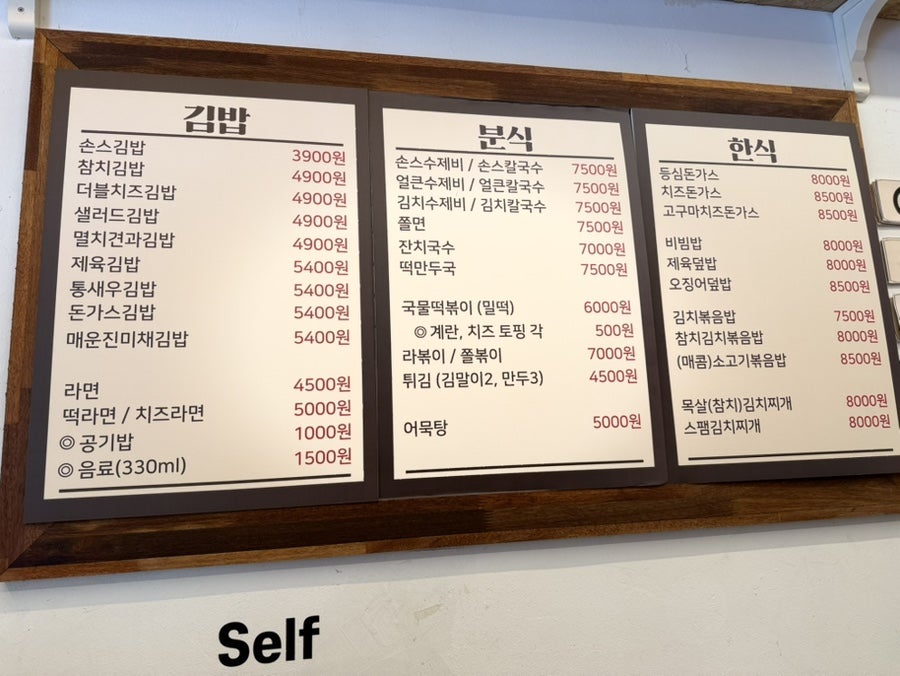 김밥
손스김밥 3900원
참치김밥 4900원
더블치즈김밥 4900원
샐러드김밥 4900원
멸치견과김밥 4900원
제육김밥 5400원
통새우김밥 5400원
돈가스김밥 5400원
매운진미채김밥 5400원
라면 4500원
떡라면 / 치즈라면 5000원
◎ 공기밥 1000원
◎ 음료(330ml) 1500원
분식
손스수제비 / 손스칼국수 7500원
얼큰수제비 / 얼큰칼국수 7500원
김치수제비 / 김치칼국수 7500원
쫄면 7500원
잔치국수 7000원
떡만두국 7500원
국물떡볶이 (밀떡) 6000원
◎ 계란, 치즈 토핑 각 500원
라볶이 / 쫄볶이 7000원
튀김 (김말이2, 만두3) 4500원
어묵탕 5000원
한식
등심돈가스 8000원
치즈돈가스 8500원
고구마치즈돈가스 8500원
비빔밥 8000원
제육덮밥 8000원
오징어덮밥 8500원
김치볶음밥 7500원
참치김치볶음밥 8000원
(매콤)소고기볶음밥 8500원
목살(참치)김치찌개 8000원
스팸김치찌개 8000원
Self